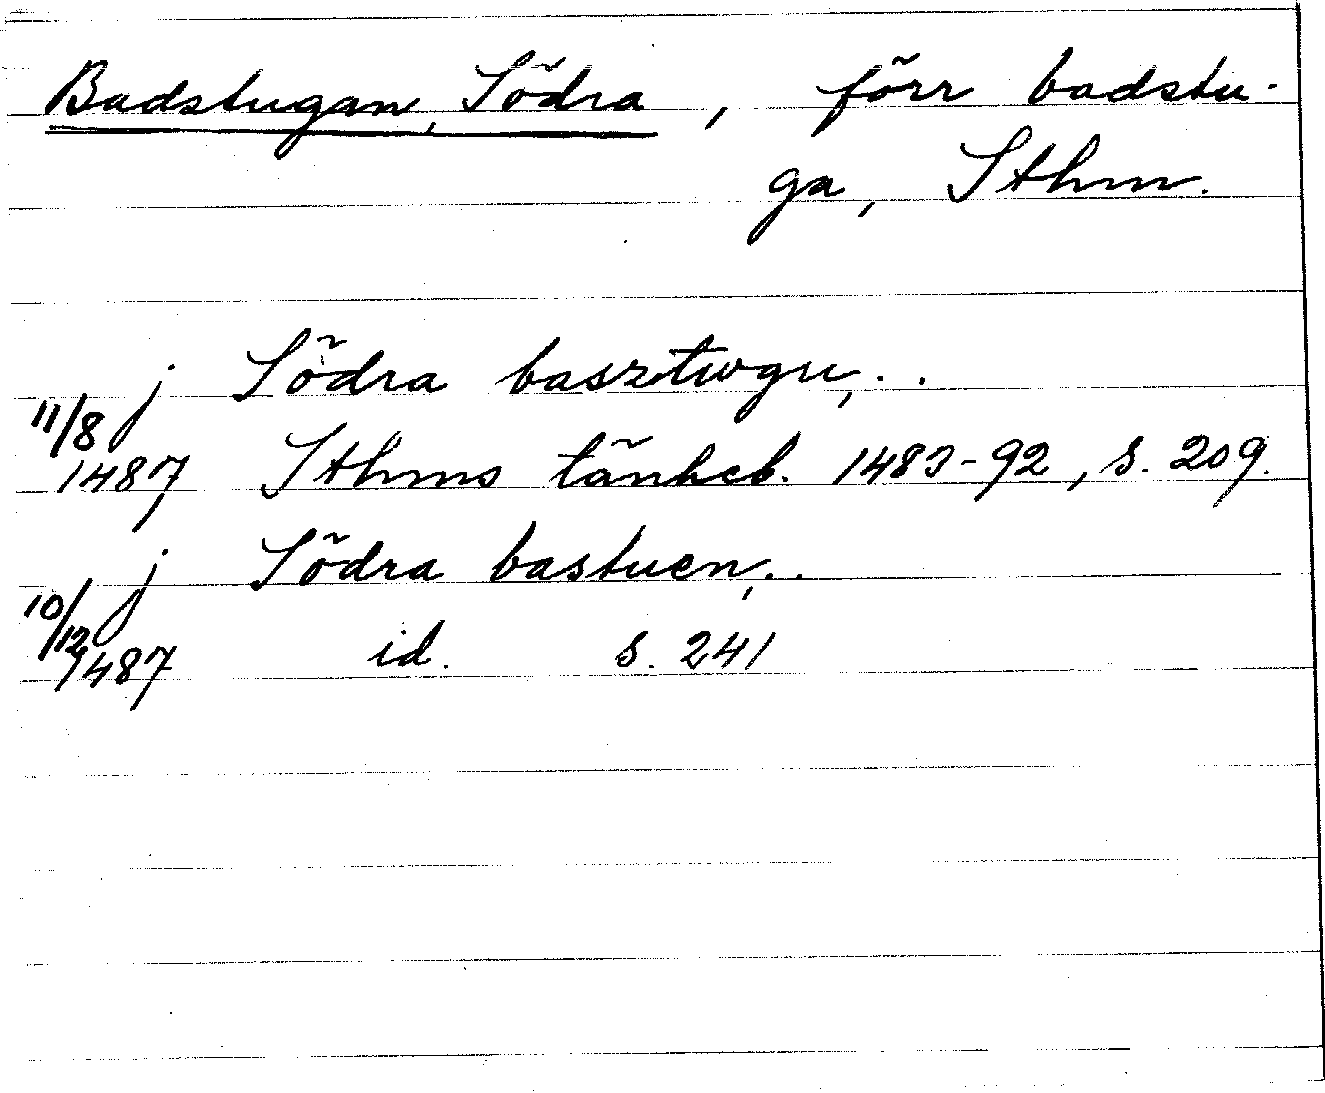 Badstugan, Södra, förr badstu-
ga, Sthm.
j Södra basztwgu, . .
11/8
1487 Sthms tänkeb. 1483-92, s. 209.
j Södra bastuen, . .
10/12
1487 id. s. 241